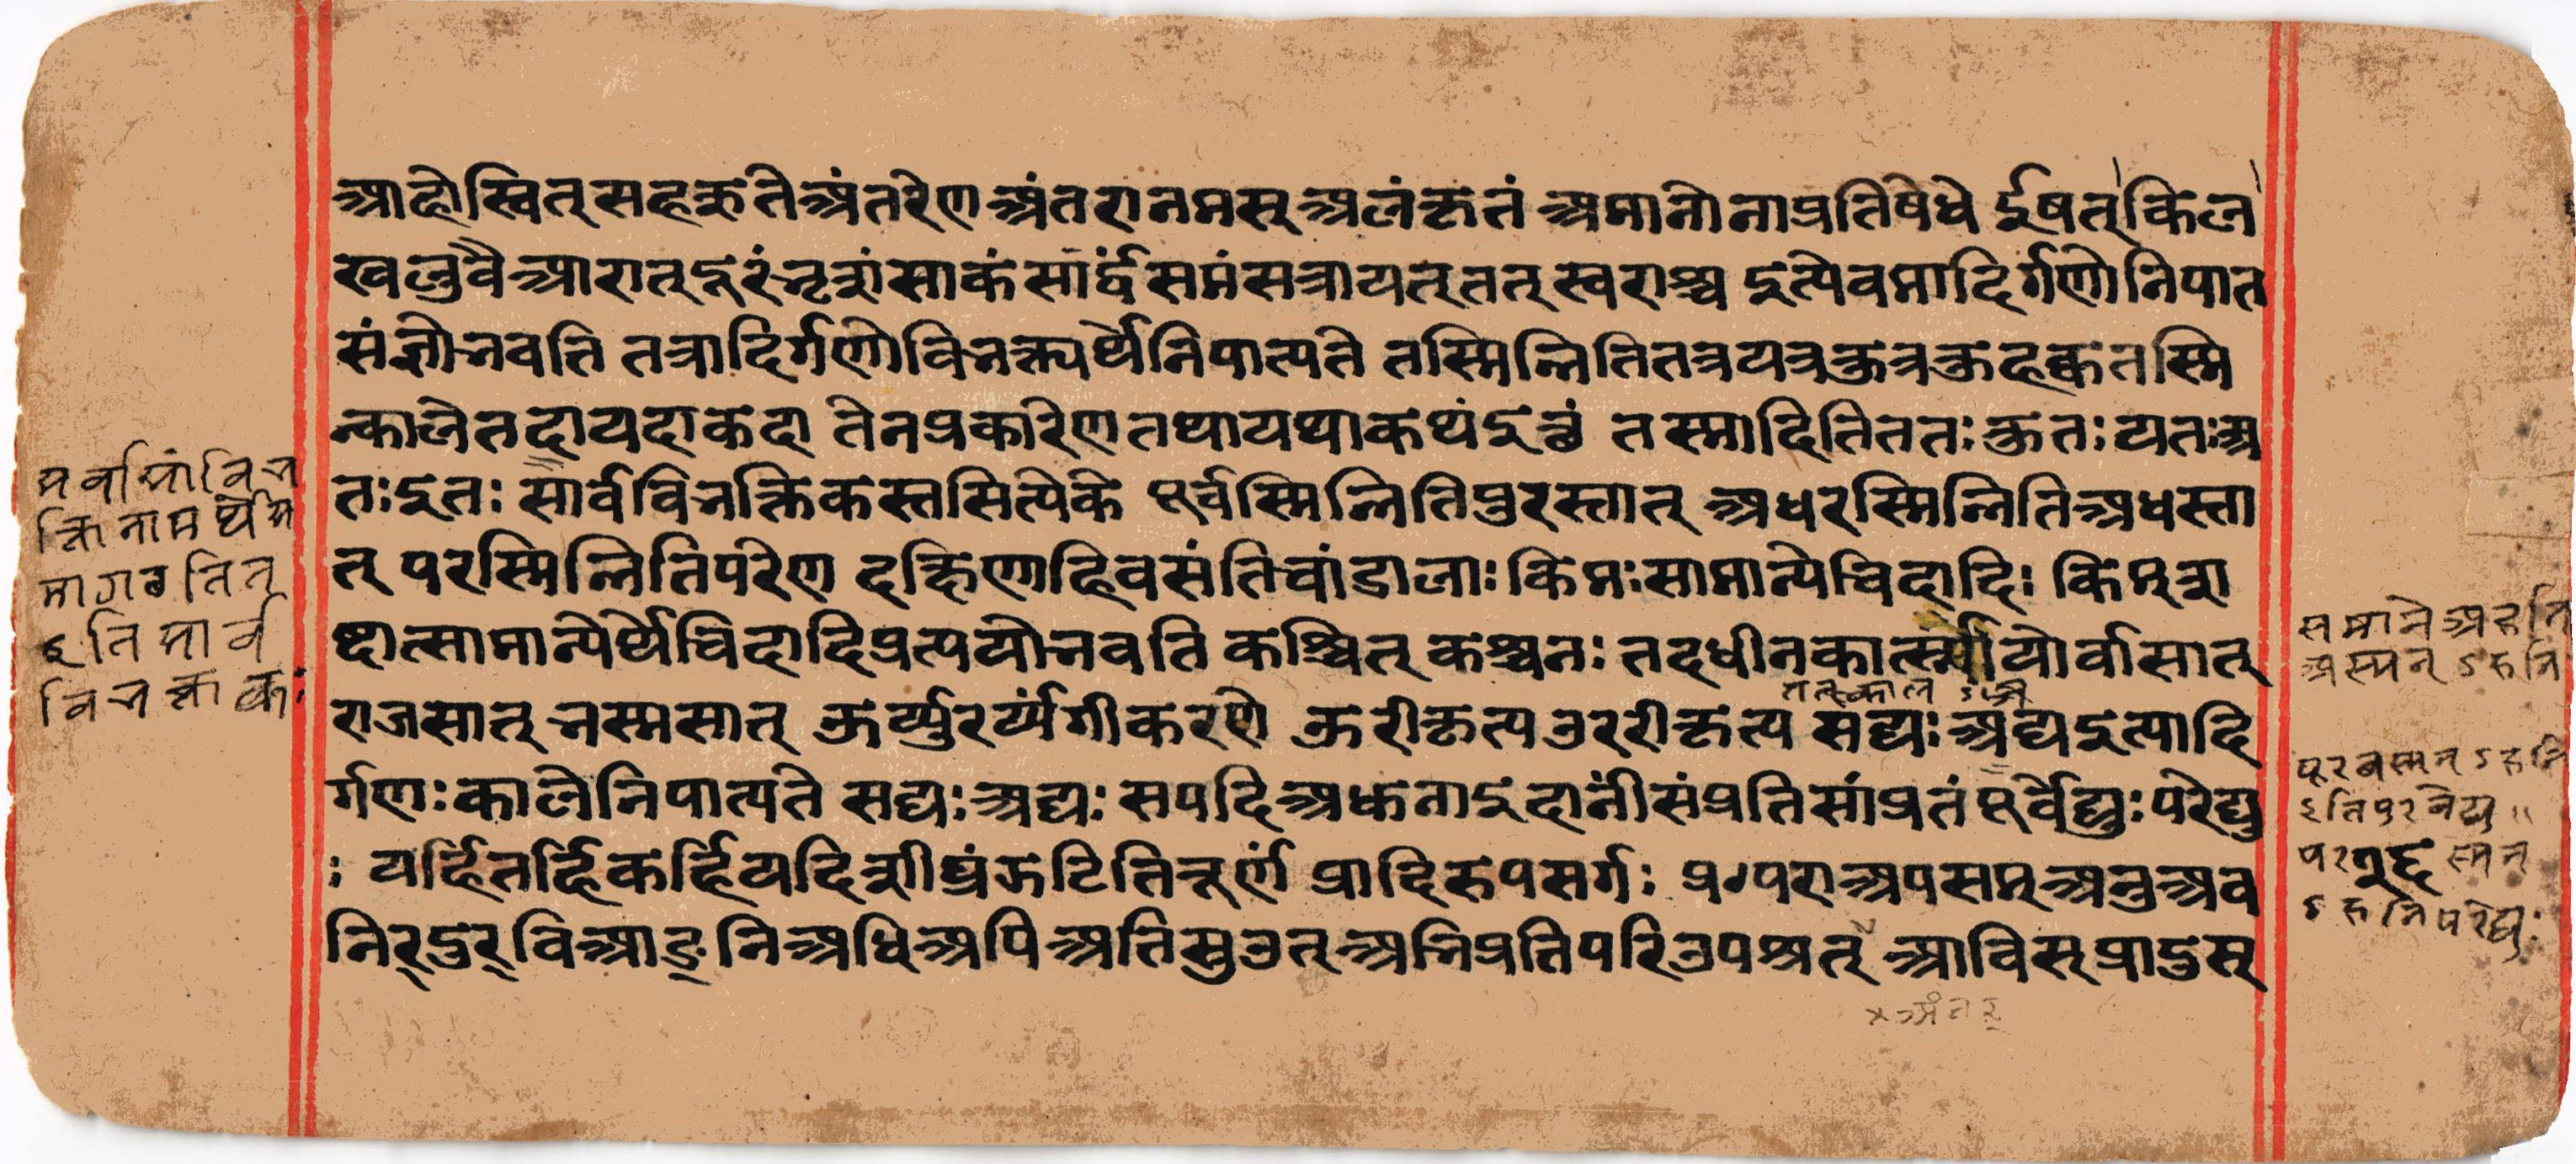 आहोस्वित् सह ऋते अंतरेण अंतरा नमस् अलंकृतं अमानोनाप्रतिषेधे ईषत् किल
खलु वै आरात् दूरं भृशं साकं सार्द्धं समं सत्रा यत् तत् स्वराश्च इत्येवमादिर्गणो निपात
संज्ञो भवति तत्रादिर्गणो विभक्त्यर्थे निपात्यते तस्मिन्निति तत्र यत्र कुत्र क्व कुह तस्मि
न्काले तदा यदा कदा तेन प्रकारेण तथा यथा कथं इत्थं तस्मादिति ततः कुतः यतः अ
तः इतः सार्वविभक्तिकस्तसित्येके पूर्वस्मिन्निति पुरस्तात् अधरस्मिन्निति अधस्ता
त् परस्मिन्निति परेण दक्षिणाहि वसंति चांडालाः किमः सामान्ये चिदादिः किम् शब्
दात्सामान्येर्थे चिदादिप्रत्ययो भवति कश्चित् कश्चनः तदधीनकार्त्स्न्ययोर्वा सात्
राजसात् भस्मसात् ऊर्य्युरर्य्यंगीकरणे ऊरीकृत्य उररीकृत्य सद्यः अद्य इत्यादि
र्गणः काले निपात्यते सद्यः अद्यः सपदि अधुना इदानीं संप्रति सांप्रतं पूर्वेद्युः परेद्यु
ः यर्हि तर्हि कर्हि यदि शीघ्रं झटिति तूर्णं प्रादिरुपसर्गः प्र परा अप सम् अनु अव
निर् दुर् वि आङ् नि अधि अपि अति सु उत् अभि प्रति परि उप श्रत् आविस् प्रादुस्
अंतर्
सर्वासां विभ
क्तिनामर्थे स
मागछतित
इति सार्व
विभक्तिकः
समाने अहनि
अस्मिन् ऽहनि
पूरवस्मन् ऽहनि
इति पुरवेद्यु ॥
ऽहनि परेद्युः